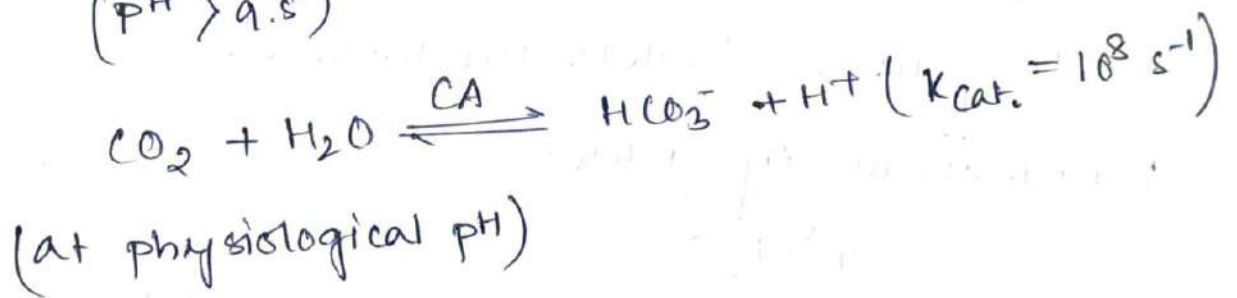 (pH > 9.5)
CO₂ + H₂O ⇌ HCO₃⁻ + H⁺ (Kcat. = 10⁸ s⁻¹)
CA
(at physiological pH)